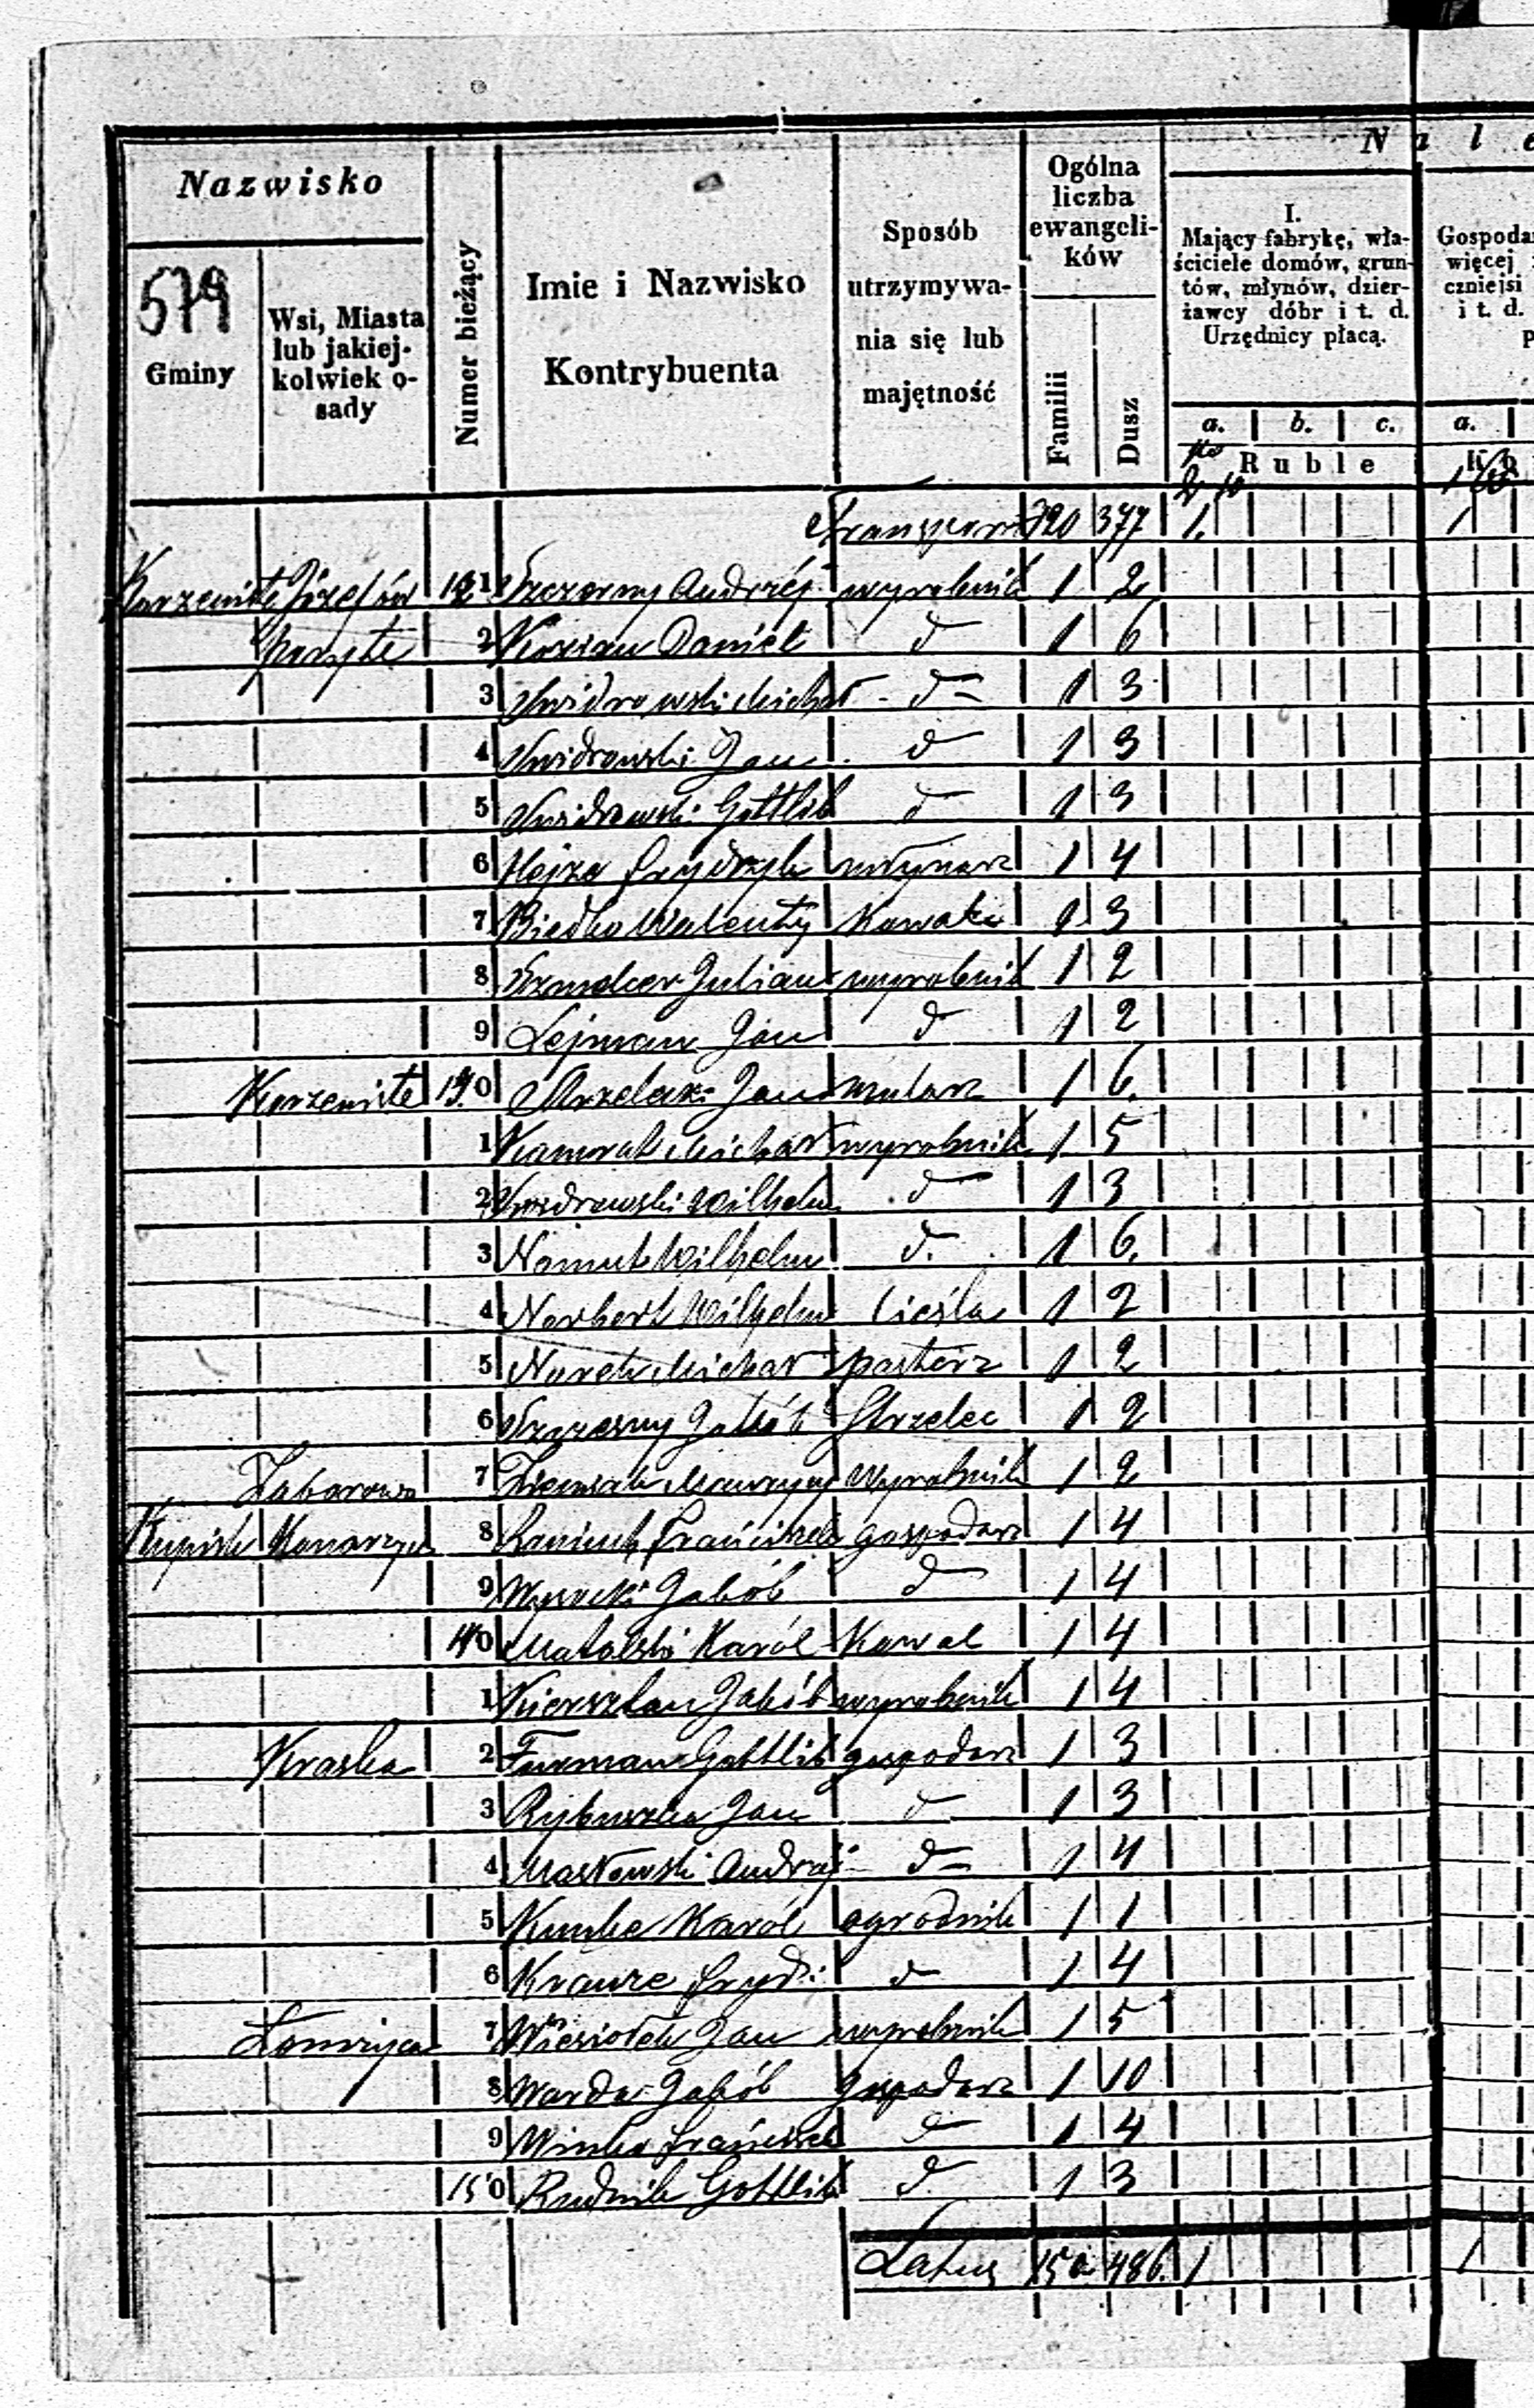 Nazwisko
579
Gminy
Wsi, Miasta
lub jakiej-
kolwiek o-
sady
Numer bieżący
Imie i Nazwisko
Kontrybuenta
Sposób
utrzymywa-
nia się lub
majętność
Ogólna
liczba
ewangeli-
ków
Familii
Dusz
N a l e
I.
Mający fabrykę, wła-
ściciele domów, grun-
tów, młynów, dzier-
żawcy dóbr i t. d.
Urzędnicy płacą.
a. b. c.
Ruble
Gospoda
więcej
czniejsi
i t. d.
p
a.
Transport 120 377 1. 1
Korzeniste Józefów 121 Szczerny Andrzéj wyrobnik 1 2
2 Korsan Daniel d 1 6
3 Świdrowski Michał d 1 3
4 Świdrowski Jan d 1 3
5 Świdrowski Gottlib d 1 3
6 Hejza Frydryk młynarz 1 4
7 Biedka Walenty Kowal 1 3
8 Szmelcer Julian wyrobnik 1 2
9 Lejman Jan d 1 2
Korzeniste 130 Mrzelecki Jan mularz 1 6.
1 Michał wyrobnik 1 5
2 Świdrowski Wilhelm d 1 3
3 Wilhelm d. 1 6.
4 Norbert Wilhelm Cieśla 1 2
5 Michał pasterz 1 2
6 Szczesny Jakób Strzelec 1 2
Zaborowo 7 Wyrobnik 1 2
Kupisk Konarzyce 8 Franciszek gospodarz 1 4
9 Wysocki Jakób d 1 4
140 Matalski Karól Kowal 1 4
1 Kiersztan Jakób wyrobnik 1 4
Kraska 2 Furman Gottlib gospodarz 1 3
3 Jan d 1 3
4 Masłowski Andrzej d 1 4
5 Kunke Karól ogrodnik 1 1
6 Krauze Fryd: d 1 4
Łomżyca 7 Wiesiołek Jan wyrobnik 1 5
8 Warda Jakób gospodarz 1 10
9 Winka Franciszek d 1 4
150 Rudnik Gottlib d. 1 3
Latus 150 486. 1 1